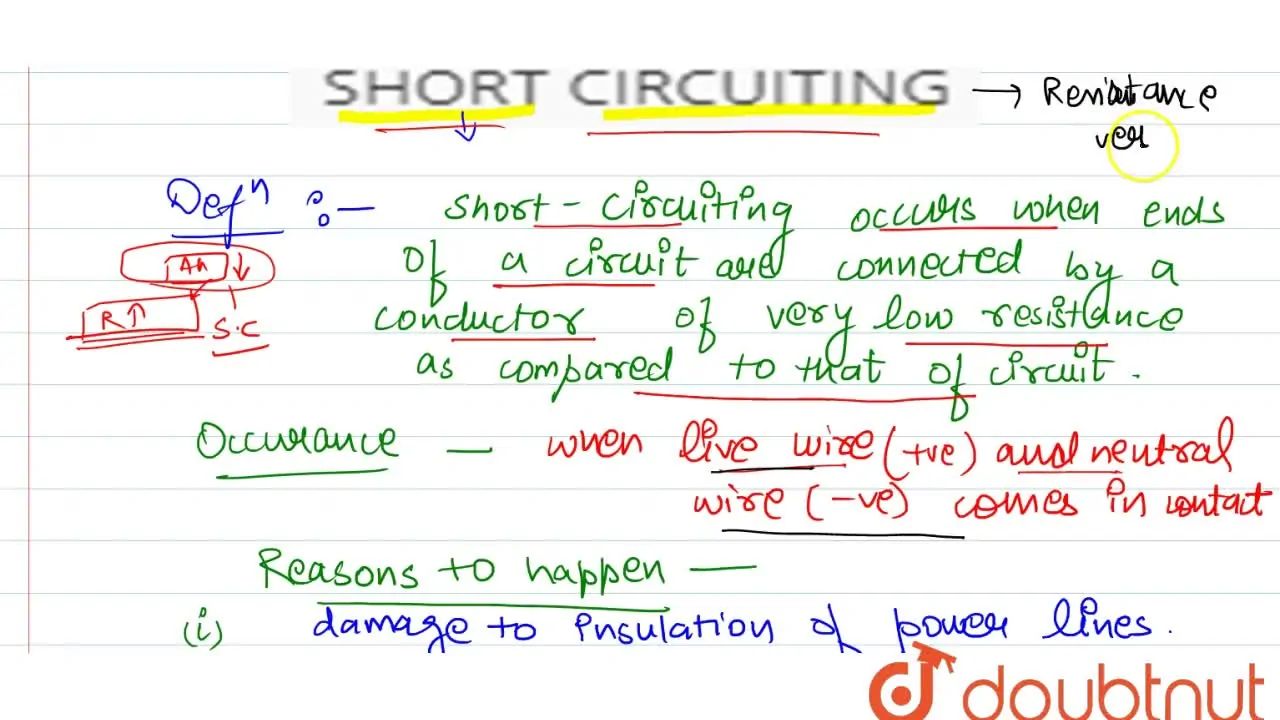 SHORT CIRCUITING → Resistance
ver
Defⁿ :- Short-Circuiting occurs when ends
of a circuit are connected by a
conductor of very low resistance
as compared to that of circuit.
R↑
S.C
Occurance - when live wire (+ve) and neutral
wire (-ve) comes in contact
Reasons to happen —
(i) damage to insulation of power lines.
doubtnut